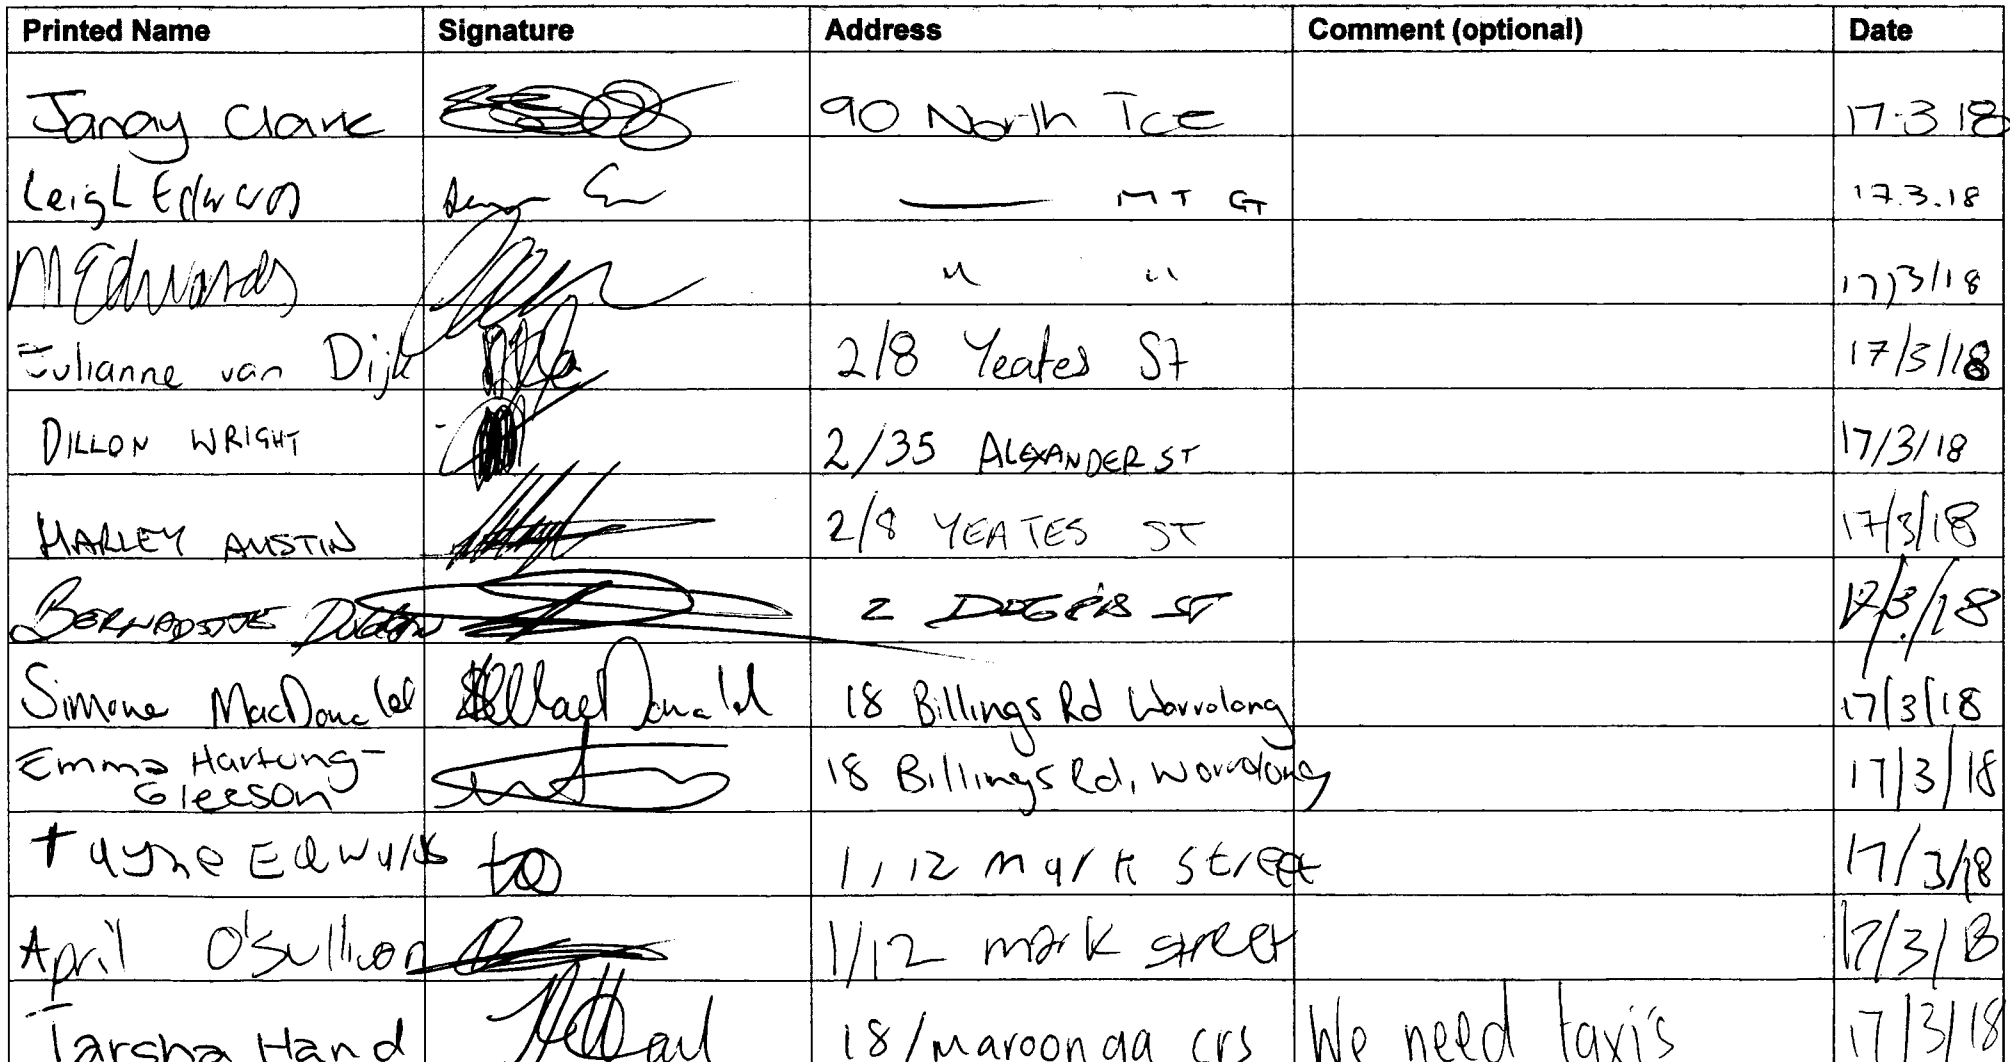 Printed Name Signature Address Comment (optional) Date
Janay Clark 90 North Tce 17.3 18
Leigh Edwards MT G 17.3.18
M Edwards " " 17/3/18
Julianne van Dijk 2/8 Yeates St 17/3/18
DILLON WRIGHT 2/35 ALEXANDER ST 17/3/18
HARLEY AUSTIN 2/8 YEATES ST 17/3/18
BERNADETTE 2 ST 17/3/18
Simone MacDonald MacDonald 18 Billings Rd Worrolong 17/3/18
Emma Hartung-
Gleeson 18 Billings Rd, Worrolong 17/3/18
Tayne Edwards 1,12 mark street 17/3/18
April O'Sullivan 1/12 mark street 17/3/18
Tarsha Hand 18/maroonga crs We need taxi's 17/3/18